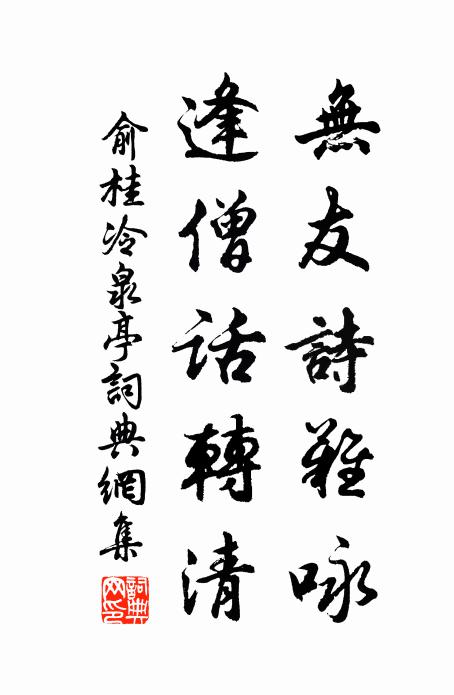 無友詩難咏
逢僧話轉清
俞桂冷泉亭詞典網集
詞典网印